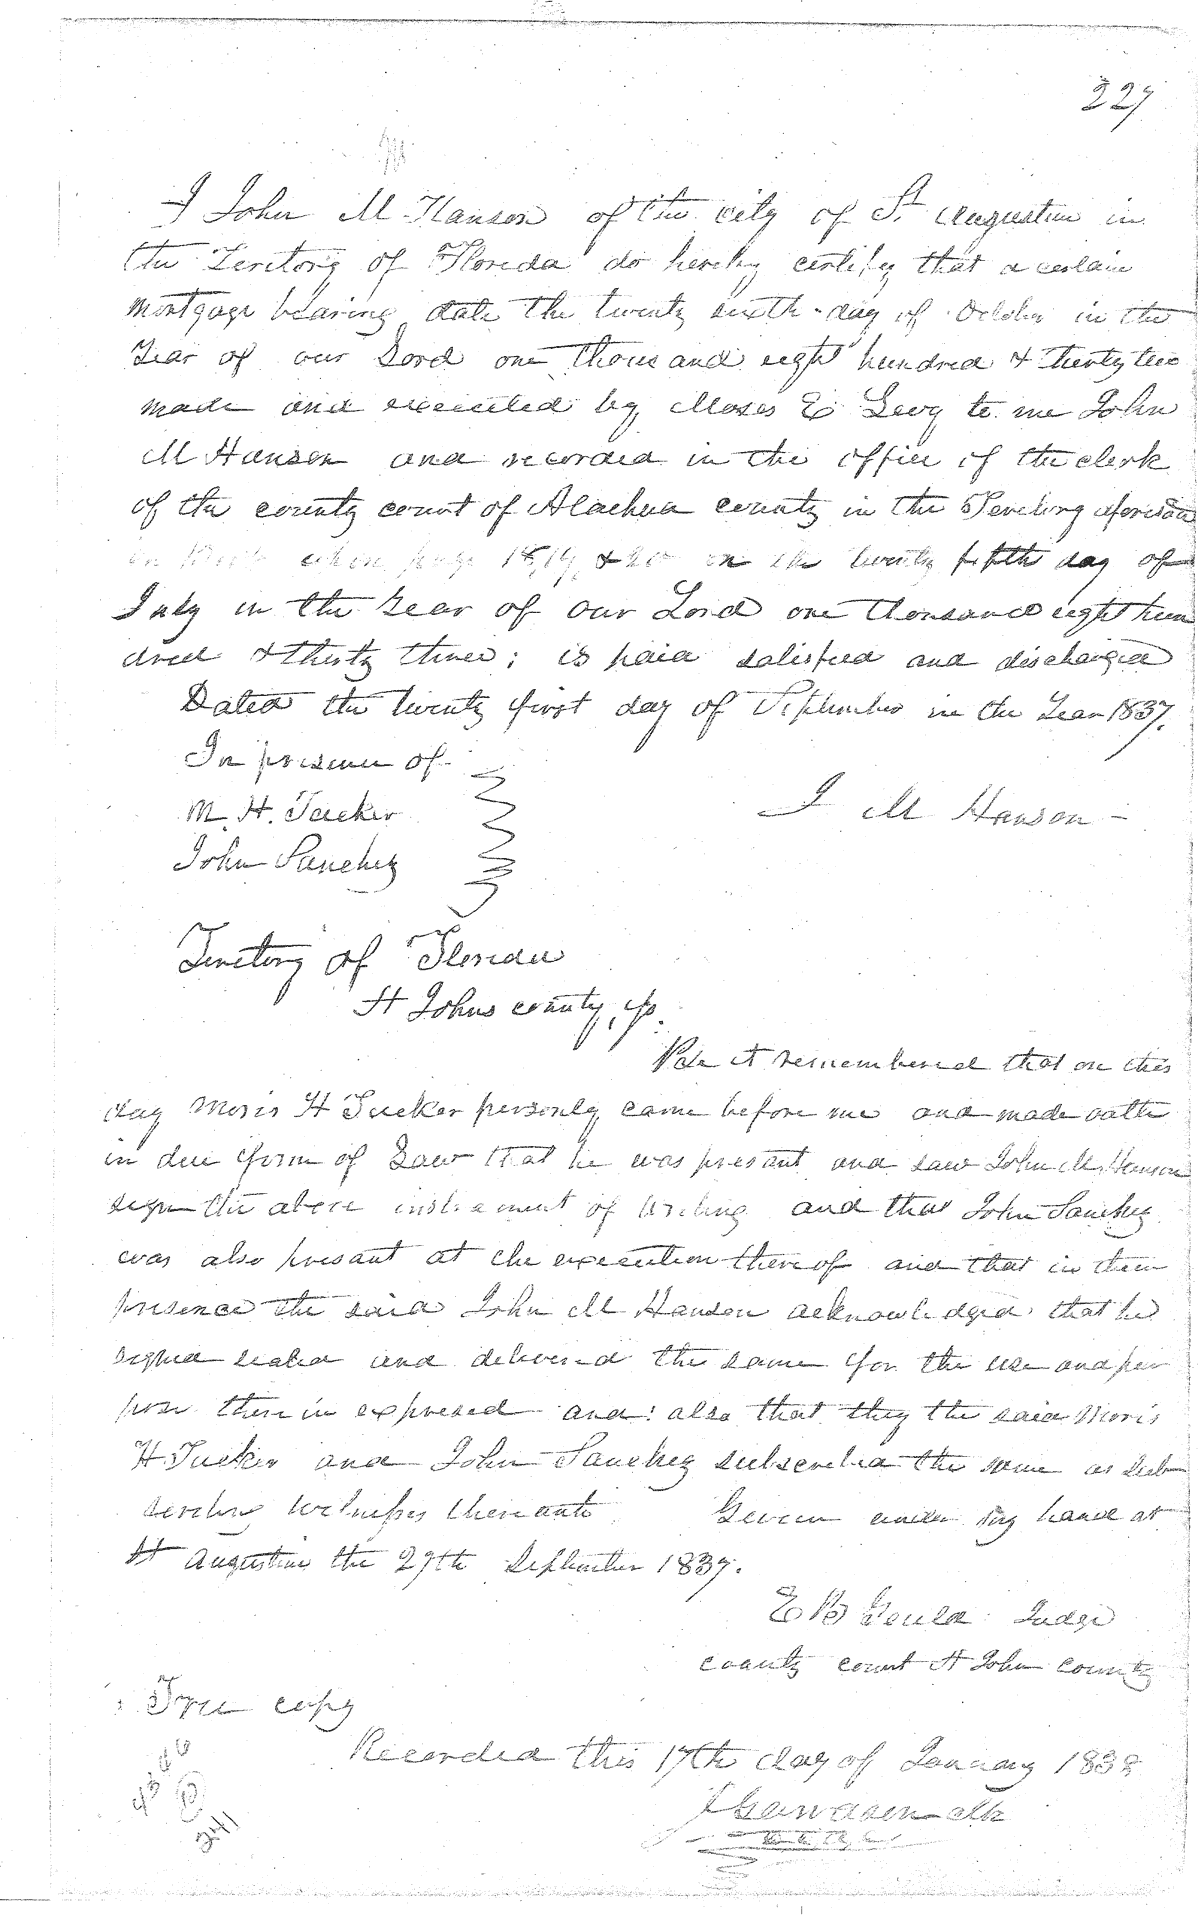 227
I John M Hanson of the city of St Augustin in
the Teritory of Florida do hereby certify that a certain
mortgage bearing date the twenty sixth day of October in the
Year of our Lord one thousand eight hundred & thirty two
made and executed by Moses E Levy to me John
M Hanson and recorded in the office of the clerk
of the county court of Alachua county in the Teritory aforesaid
in Book page 18, 19, & 20 on the twenty fifth day of
July in the Year of our Lord one thousand eight hun
dred & thirty three; is paid satisfied and discharged
Dated the twenty first day of September in the Year 1837.
In presence of
M. H. Tucker
J M Hanson
John Sanchez
Teritory of Florida
St Johns county, ss.
Be it remembered that on this
day Moris H Tucker personly came before me and made oath
in due form of Law that he was presant and saw John M Hanson
sign the above instrument of Writing and that John Sanchez
was also presant at the execution thereof and that in their
presence the said John M Hanson acknowledged that he
signed sealed and delivered the same for the use and pur
pose therein expresed and also that they the said Moris
H. Tucker and John Sanchez subscribed the same as sub
scribing witnesses thereunto Given under my hand at
St Augustine the 27th September 1837.
E B Gould Judge
county court St John County
True copy
Recorded this 17th day of January 1838
241